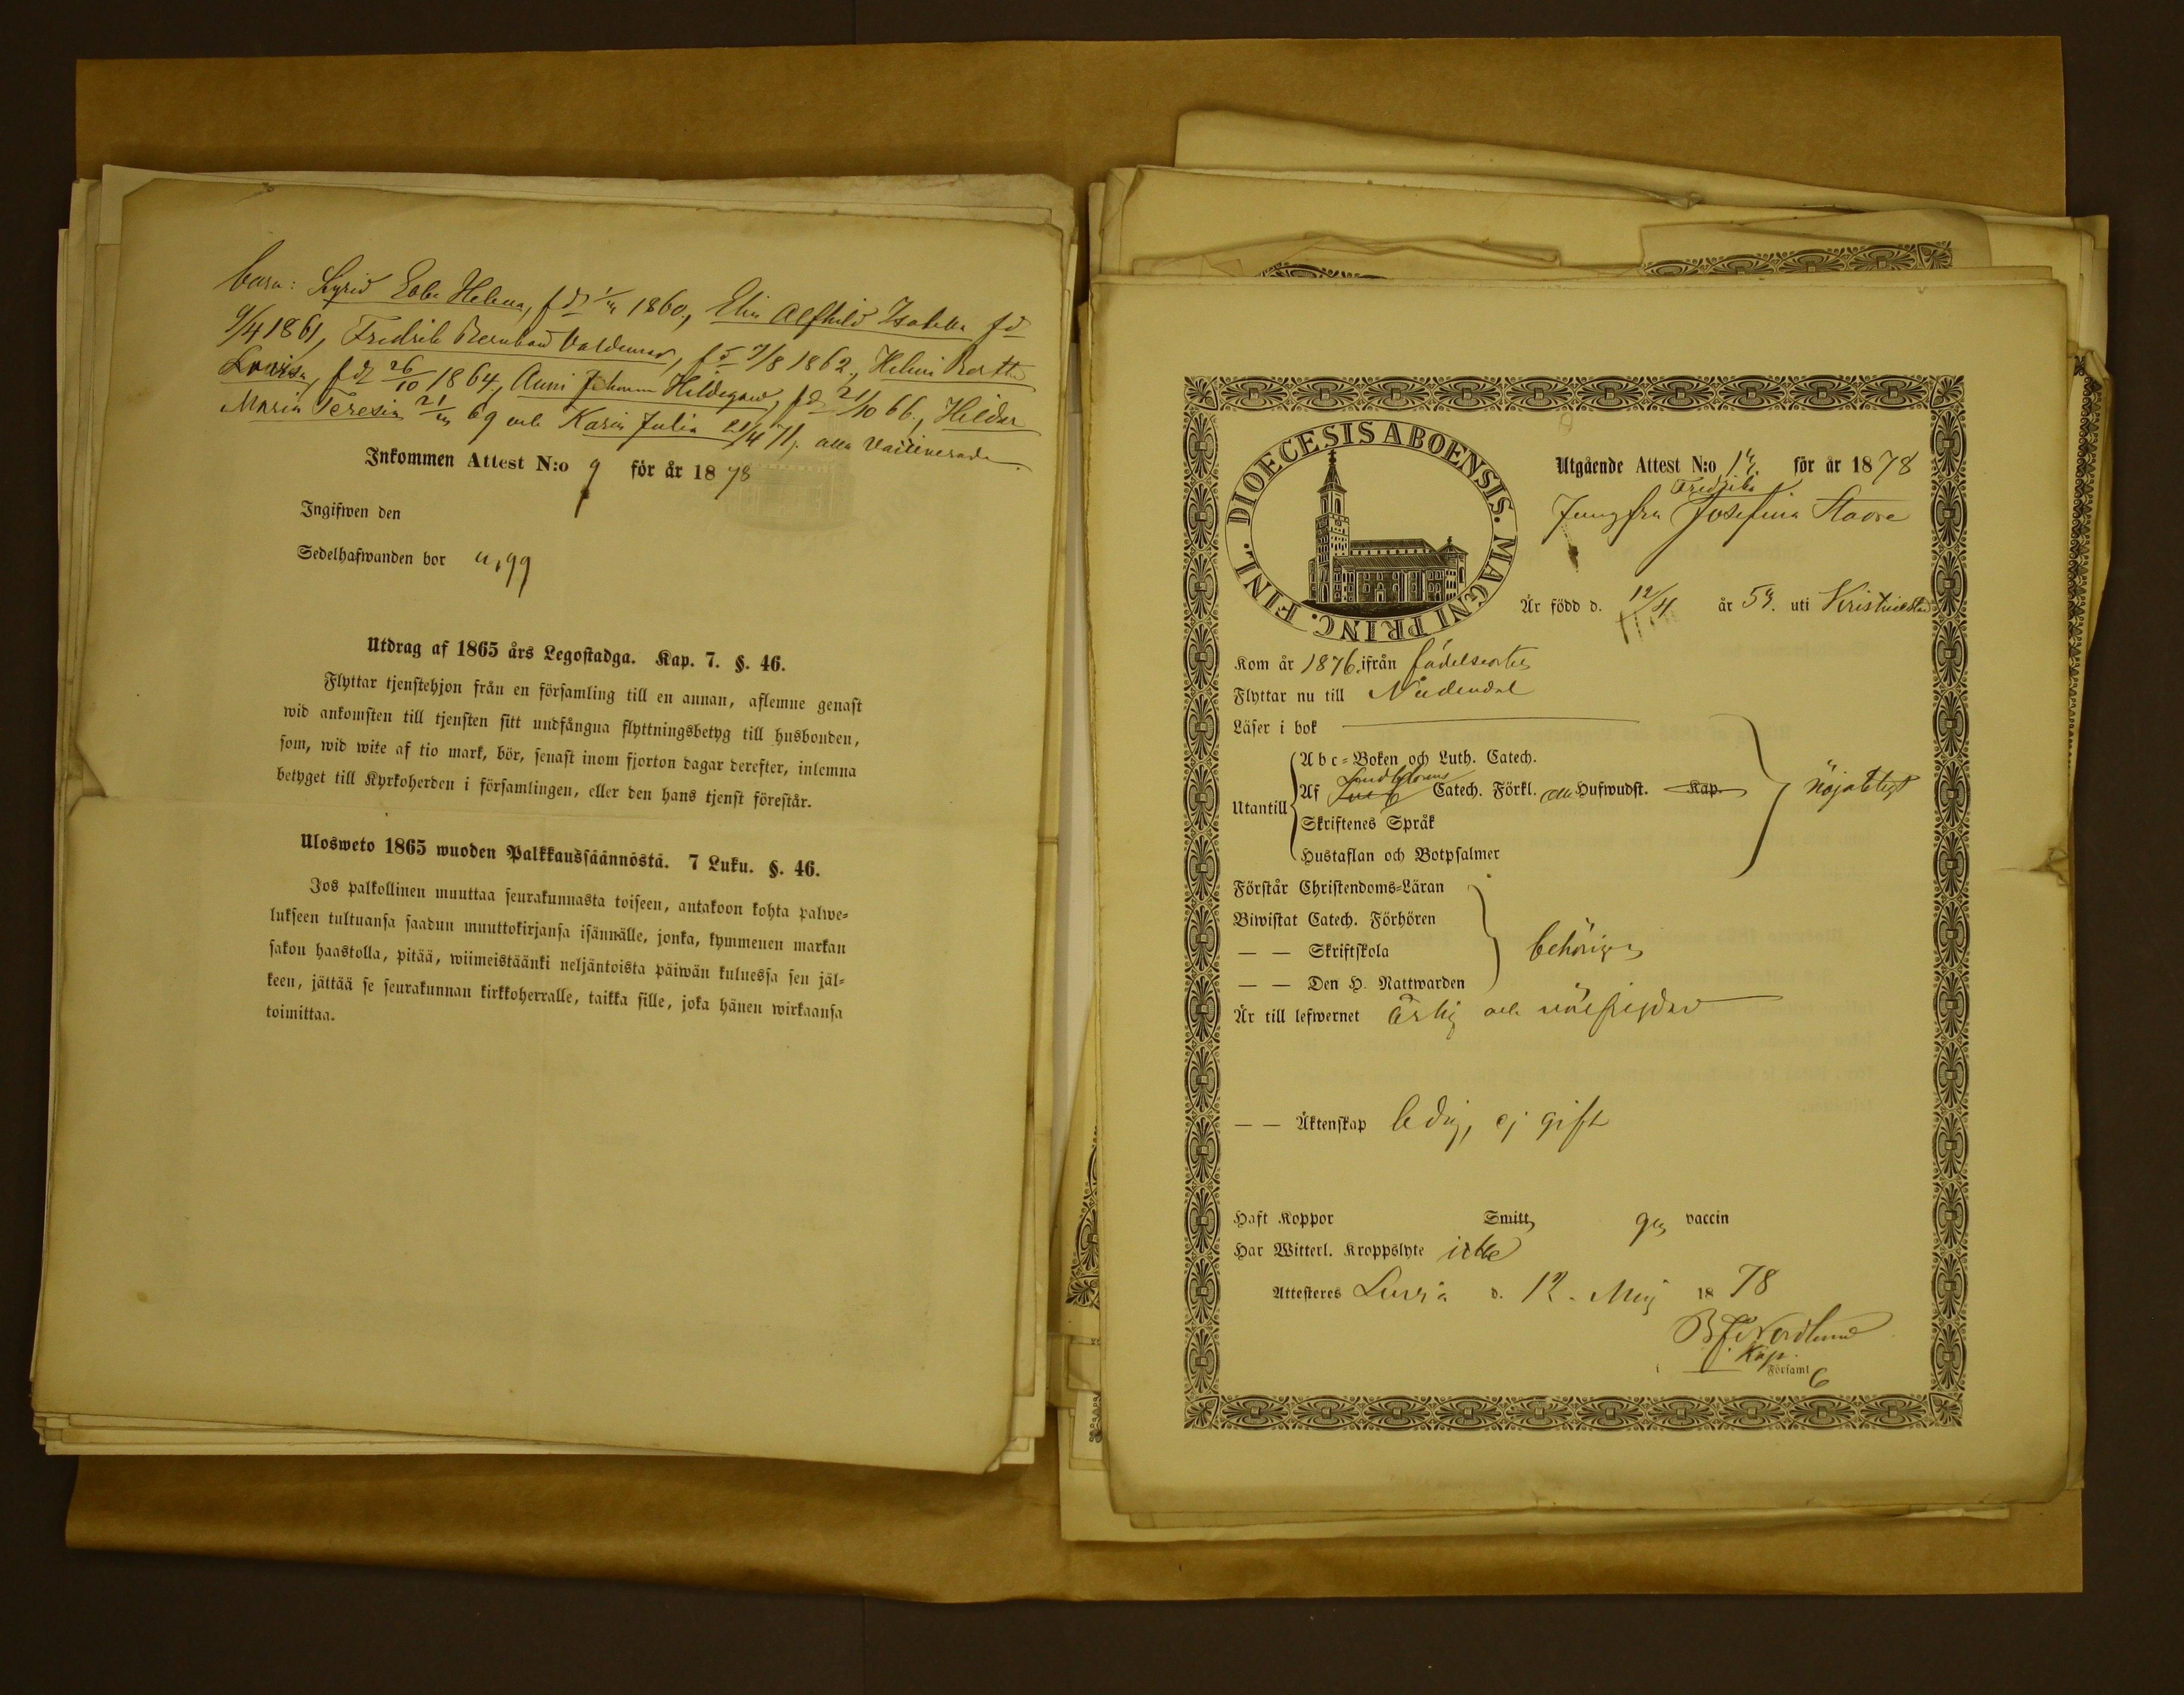 barn: Sigrid Ebba Helena, fd 1860., Elin Alfhild Isabella fd
9/4 1861, Fredrik Bernhard Valdemar, fd 9/8 1862., Helmi Bertha
Lovisa, fd 26/10 1864., Anni Johanna Hildegard, fd 21/10 66., Hildur
Maria Teresia 69 och Karin Julia 21/4 71. alla vaccinerade.
Inkommen Attest N:o 9 för år 1878
Ingifwen den
Sedelhafwanden bor u, 99
Utdrag af 1865 års Legostadga. Kap. 7. §. 46.
Flyttar tjenstehjon från en församling till en annan, aflemne genast
wid ankomsten till tjensten sitt undfångna flyttningsbetyg till husbonden,
som, wid wite af tio mark, bör, senast inom fjorton dagar derefter, inlemna
betyget till Kyrkoherden i församlingen, eller den hans tjenst förestår.
Ulosweto 1865 wuoden Palkkaussäännöstä. 7 Luku. §. 46.
Jos palkollinen muuttaa seurakunnasta toiseen, antakoon kohta palwe=
lukseen tultuansa saadun muuttokirjansa isännälle, jonka, kymmenen markan
sakon haastolla, pitää, wiimeistäänki neljäntoista päiwän kuluessa sen jäl=
keen, jättää se seurakunnan kirkkoherralle, taikka sille, joka hänen wirkaansa
toimittaa.
DIOECESIS ABOENSIS. MAGNI PRINC. FINL.
Utgående Attest N:o för år 1878
Fredrika
Jungfru Josefina Haore
Är född d. 12/4 år 54. uti Kristinestad
Kom år 1876. ifrån födelseorten
Flyttar nu till Nådendal
Läser i bok
Utantill
Abc=Boken och Luth. Catech.
Af Lundbloms Catech. Förkl. alla Hufwudst. Kap.
Skriftenes Språk
Hustaflan och Botpsalmer
nöjaktigt
Förstår Christendoms=Läran
Biwistat Catech. Förhören
— — Skriftskola
— — Den H. Nattwarden
behörigen
Är till lefwernet ärlig och välfrejdad
— — Äktenskap ledig, ej gift
Haft Koppor Smitt, gen vaccin
Har Witterl. Kroppslyte icke
Attesteras Luvia d. 12. Maj 1878
B F Nordlund
Kap.
i Församl